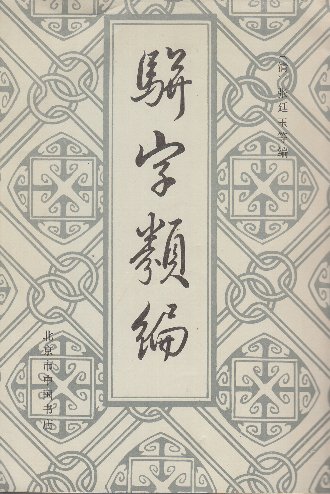 〔清〕张廷玉等编
駢字類編
北京市中国书店